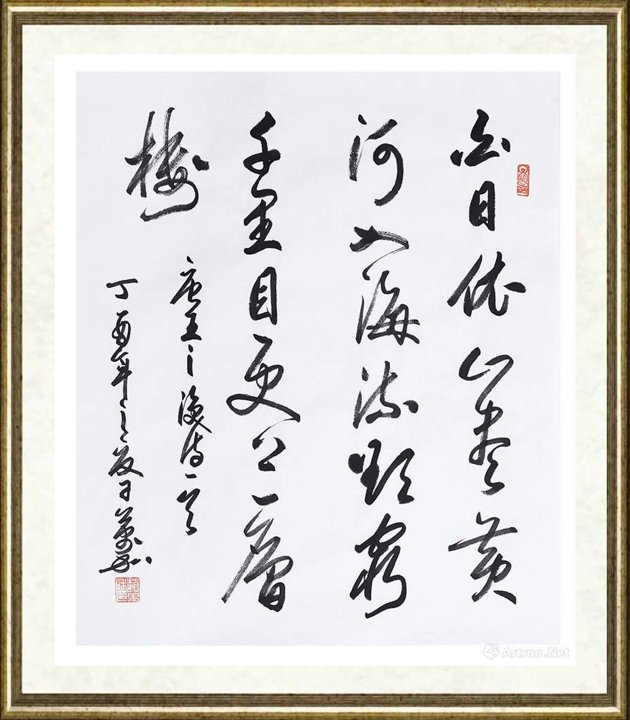 白日依山盡黄
河入海流欲窮
千里目更上一層
樓
唐王之渙詩一首
丁酉年之
Artron.Net